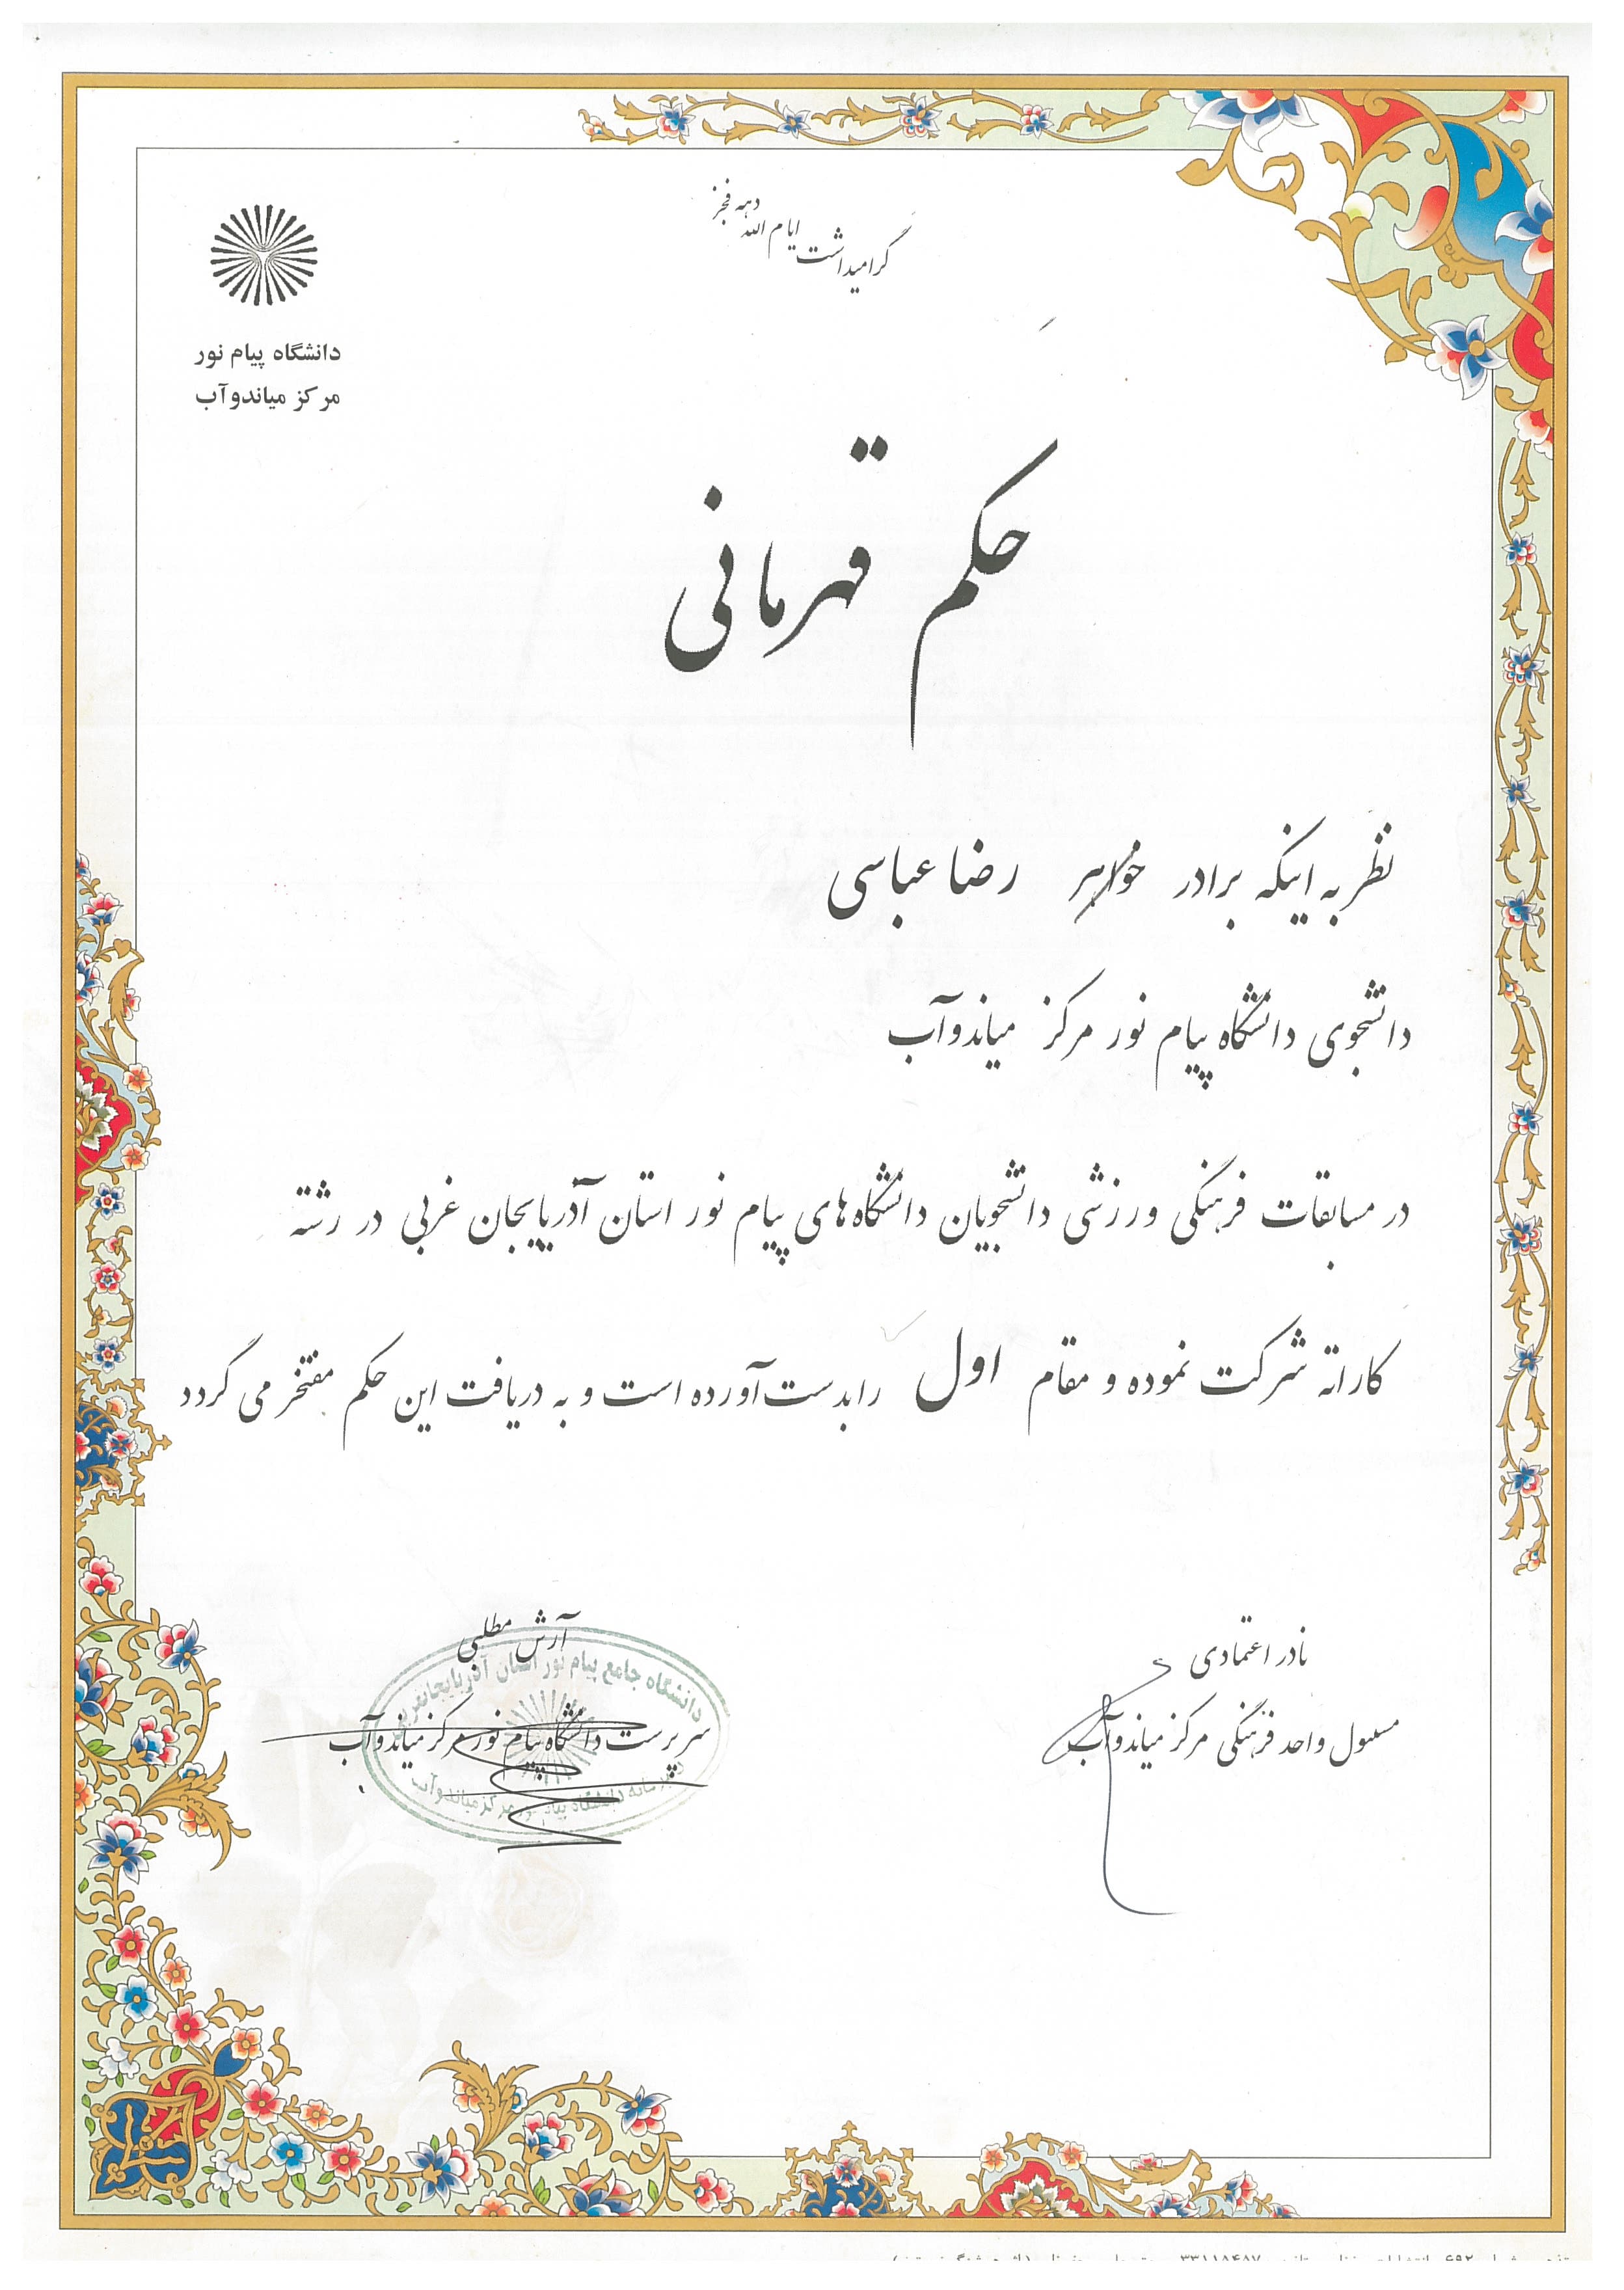 گرامیداشت ایام الله دهه فجر
دانشگاه پیام نور
مرکز میاندوآب
حکم قهرمانی
نظر به اینکه برادر خواهر رضا عباسی
دانشجوی دانشگاه پیام نور مرکز میاندوآب
در مسابقات فرهنگی ورزشی دانشجویان دانشگاه‌های پیام نور استان آذربایجان غربی در رشته
کاراته شرکت نموده و مقام اول را بدست آورده است و به دریافت این حکم مفتخر می گردد
نادر اعتمادی
مسئول واحد فرهنگی مرکز میاندوآب
آرش مطلبی
سرپرست دانشگاه پیام نور مرکز میاندوآب
دانشگاه جامع پیام نور استان آذربایجانغربی
دبیرخانه دانشگاه پیام نور مرکز میاندوآب